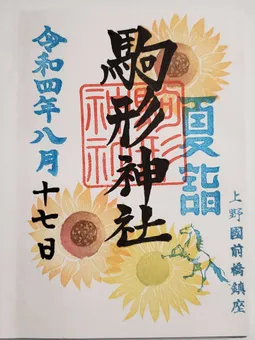 夏詣
上野國前橋鎮座
駒形神社
駒形神社
令和四年八月十七日